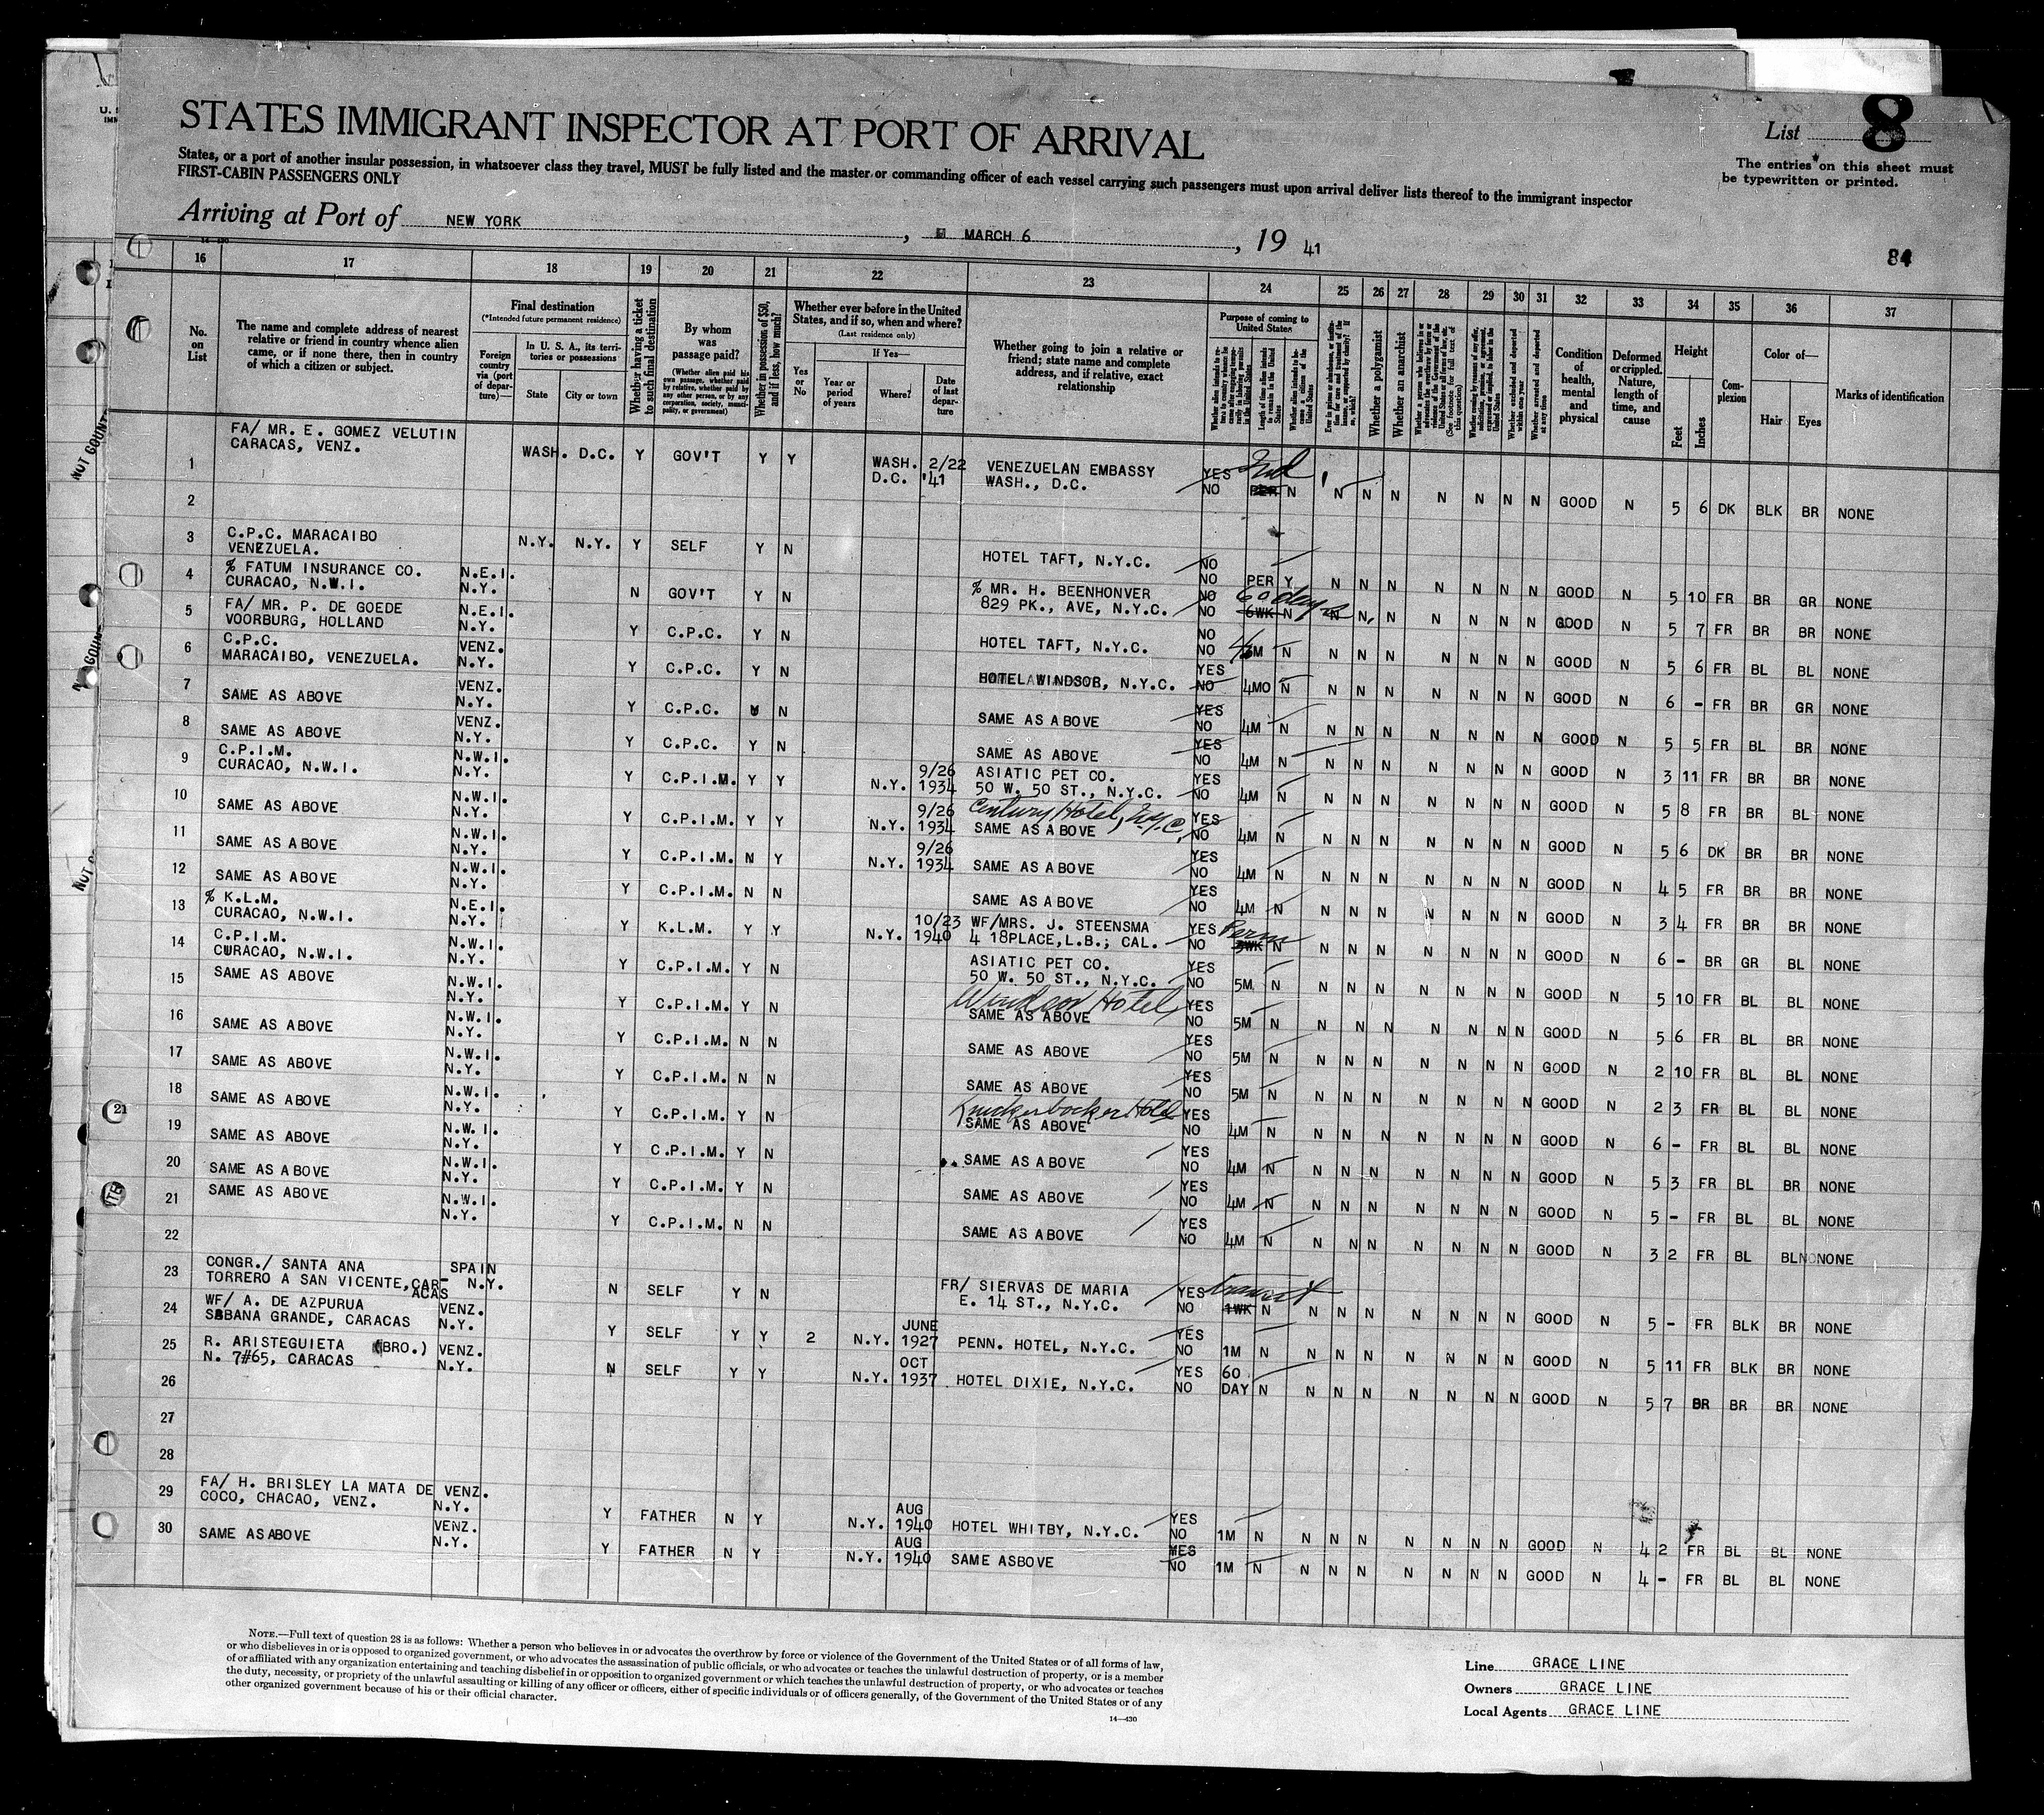 U. S
IMM
STATES IMMIGRANT INSPECTOR AT PORT OF ARRIVAL
List 8
States, or a port of another insular possession, in whatsoever class they travel, MUST be fully listed and the master or commanding officer of each vessel carrying such passengers must upon arrival deliver lists thereof to the immigrant inspector
The entries on this sheet must
be typewritten or printed.
FIRST-CABIN PASSENGERS ONLY
Arriving at Port of NEW YORK , MARCH 6 , 19 41
14-430
84
16 17 18 19 20 21 22 23 24 25 26 27 28 29 30 31 32 33 34 35 36 37
No. on List
The name and complete address of nearest relative or friend in country whence alien came, or if none there, then in country of which a citizen or subject.
Final destination
(*Intended future permanent residence)
Foreign country via (port of departure)—
In U. S. A., its territories or possessions
State
City or town
Whether having a ticket to such final destination
By whom was passage paid?
(Whether alien paid his own passage, whether paid by relative, whether paid by any other person, or by any corporation, society, municipality, or government)
Whether in possession of $50, and if less, how much?
Whether ever before in the United States, and if so, when and where?
(Last residence only)
Yes or No
If Yes—
Year or period of years
Where?
Date of last departure
Whether going to join a relative or friend; state name and complete address, and if relative, exact relationship
Purpose of coming to United States
Length of time alien intends to remain in the United States
Whether alien intends to become a citizen of the United States
Whether a polygamist
Whether an anarchist
Condition of health, mental and physical
Deformed or crippled. Nature, length of time, and cause
Height
Feet
Inches
Complexion
Color of—
Hair
Eyes
Marks of identification
NOT COUNT
1 FA/ MR. E. GOMEZ VELUTIN
CARACAS, VENZ. WASH. D.C. Y GOV'T Y Y WASH. D.C. 2/22 '41 VENEZUELAN EMBASSY
WASH., D.C. YES NO PER N N N N N N N N GOOD N 5 6 DK BLK BR NONE
2
3 C.P.C. MARACAIBO
VENEZUELA. N.Y. N.Y. Y SELF Y N HOTEL TAFT, N.Y.C. NO NO PER Y N N N N N N N GOOD N 5 10 FR BR GR NONE
4 % FATUM INSURANCE CO.
CURACAO, N.W.I. N.E.I. N.Y. N GOV'T Y N % MR. H. BEENHONVER
829 PK., AVE, N.Y.C. NO NO 60 days 6WK N N N N N N N N GOOD N 5 7 FR BR BR NONE
5 FA/ MR. P. DE GOEDE
VOORBURG, HOLLAND N.E.I. N.Y. Y C.P.C. Y N HOTEL TAFT, N.Y.C. NO NO M N N N N N N N N GOOD N 5 6 FR BL BL NONE
6 C.P.C.
MARACAIBO, VENEZUELA. VENZ. N.Y. Y C.P.C. Y N HOTEL WINDSOR, N.Y.C. YES NO 4MO N N N N N N N N GOOD N 6 - FR BR GR NONE
7 SAME AS ABOVE VENZ. N.Y. Y C.P.C. N SAME AS ABOVE YES NO 4M N N N N N N N N GOOD N 5 5 FR BL BR NONE
8 SAME AS ABOVE VENZ. N.Y. Y C.P.C. Y N SAME AS ABOVE YES NO 4M N N N N N N N N GOOD N 3 11 FR BR BR NONE
9 C.P.I.M.
CURACAO, N.W.I. N.W.I. N.Y. Y C.P.I.M. Y Y N.Y. 9/26 1934 ASIATIC PET CO.
50 W. 50 ST., N.Y.C. YES NO 4M N N N N N N N N GOOD N 5 8 FR BR BL NONE
Century Hotel, N.Y.C.
10 SAME AS ABOVE N.W.I. N.Y. Y C.P.I.M. Y Y N.Y. 9/26 1934 SAME AS ABOVE YES NO 4M N N N N N N N N GOOD N 5 6 DK BR BR NONE
11 SAME AS ABOVE N.W.I. N.Y. Y C.P.I.M. N Y N.Y. 9/26 1934 SAME AS ABOVE YES NO 4M N N N N N N N N GOOD N 4 5 FR BR BR NONE
12 SAME AS ABOVE N.W.I. N.Y. Y C.P.I.M. N N SAME AS ABOVE YES NO 4M N N N N N N N N GOOD N 3 4 FR BR BR NONE
13 % K.L.M.
CURACAO, N.W.I. N.E.I. N.Y. Y K.L.M. Y Y N.Y. 10/23 1940 WF/MRS. J. STEENSMA
4 18PLACE, L.B.; CAL. YES NO Perm 3WK N N N N N N N N GOOD N 6 - BR GR BL NONE
14 C.P.I.M.
CURACAO, N.W.I. N.W.I. N.Y. Y C.P.I.M. Y N ASIATIC PET CO.
50 W. 50 ST., N.Y.C. YES NO 5M N N N N N N N N GOOD N 5 10 FR BL BL NONE
Windsor Hotel
15 SAME AS ABOVE N.W.I. N.Y. Y C.P.I.M. Y N SAME AS ABOVE YES NO 5M N N N N N N N N GOOD N 5 6 FR BL BR NONE
16 SAME AS ABOVE N.W.I. N.Y. Y C.P.I.M. N N SAME AS ABOVE YES NO 5M N N N N N N N N GOOD N 2 10 FR BL BL NONE
17 SAME AS ABOVE N.W.I. N.Y. Y C.P.I.M. N N SAME AS ABOVE YES NO 5M N N N N N N N N GOOD N 2 3 FR BL BL NONE
Knickerbocker Hotel
18 SAME AS ABOVE N.W.I. N.Y. Y C.P.I.M. Y N SAME AS ABOVE YES NO 4M N N N N N N N N GOOD N 6 - FR BL BL NONE
19 SAME AS ABOVE N.W.I. N.Y. Y C.P.I.M. Y N SAME AS ABOVE YES NO 4M N N N N N N N N GOOD N 5 3 FR BL BR NONE
20 SAME AS ABOVE N.W.I. N.Y. Y C.P.I.M. Y N SAME AS ABOVE YES NO 4M N N N N N N N N GOOD N 5 - FR BL BL NONE
21 SAME AS ABOVE N.W.I. N.Y. Y C.P.I.M. N N SAME AS ABOVE YES NO 4M N N N N N N N N GOOD N 3 2 FR BL BL NONE
22
23 CONGR./ SANTA ANA
TORRERO A SAN VICENTE, CARACAS SPAIN N.Y. N SELF Y N FR/ SIERVAS DE MARIA
E. 14 ST., N.Y.C. YES NO transit 1WK N N N N N N N N GOOD N 5 - FR BLK BR NONE
24 WF/ A. DE AZPURUA
SABANA GRANDE, CARACAS VENZ. N.Y. Y SELF Y Y 2 N.Y. JUNE 1927 PENN. HOTEL, N.Y.C. YES NO 1M N N N N N N N N GOOD N 5 11 FR BLK BR NONE
25 R. ARISTEGUIETA (BRO.)
N. 7#65, CARACAS VENZ. N.Y. N SELF Y Y N.Y. OCT 1937 HOTEL DIXIE, N.Y.C. YES NO 60 DAY N N N N N N N N GOOD N 5 7 BR BR BR NONE
26
27
28
29 FA/ H. BRISLEY LA MATA DE
COCO, CHACAO, VENZ. VENZ. N.Y. Y FATHER N Y N.Y. AUG 1940 HOTEL WHITBY, N.Y.C. YES NO 1M N N N N N N N N GOOD N 4 2 FR BL BL NONE
30 SAME ASABOVE VENZ. N.Y. Y FATHER N Y N.Y. AUG 1940 SAME ASBOVE YES NO 1M N N N N N N N N GOOD N 4 - FR BL BL NONE
NOTE.—Full text of question 28 is as follows: Whether a person who believes in or advocates the overthrow by force or violence of the Government of the United States or of all forms of law,
or who disbelieves in or is opposed to organized government, or who advocates the assassination of public officials, or who advocates or teaches the unlawful destruction of property, or is a member
of or affiliated with any organization entertaining and teaching disbelief in or opposition to organized government or which teaches the unlawful destruction of property, or who advocates or teaches
the duty, necessity, or propriety of the unlawful assaulting or killing of any officer or officers, either of specific individuals or of officers generally, of the Government of the United States or of any
other organized government because of his or their official character.
14—430
Line GRACE LINE
Owners GRACE LINE
Local Agents GRACE LINE